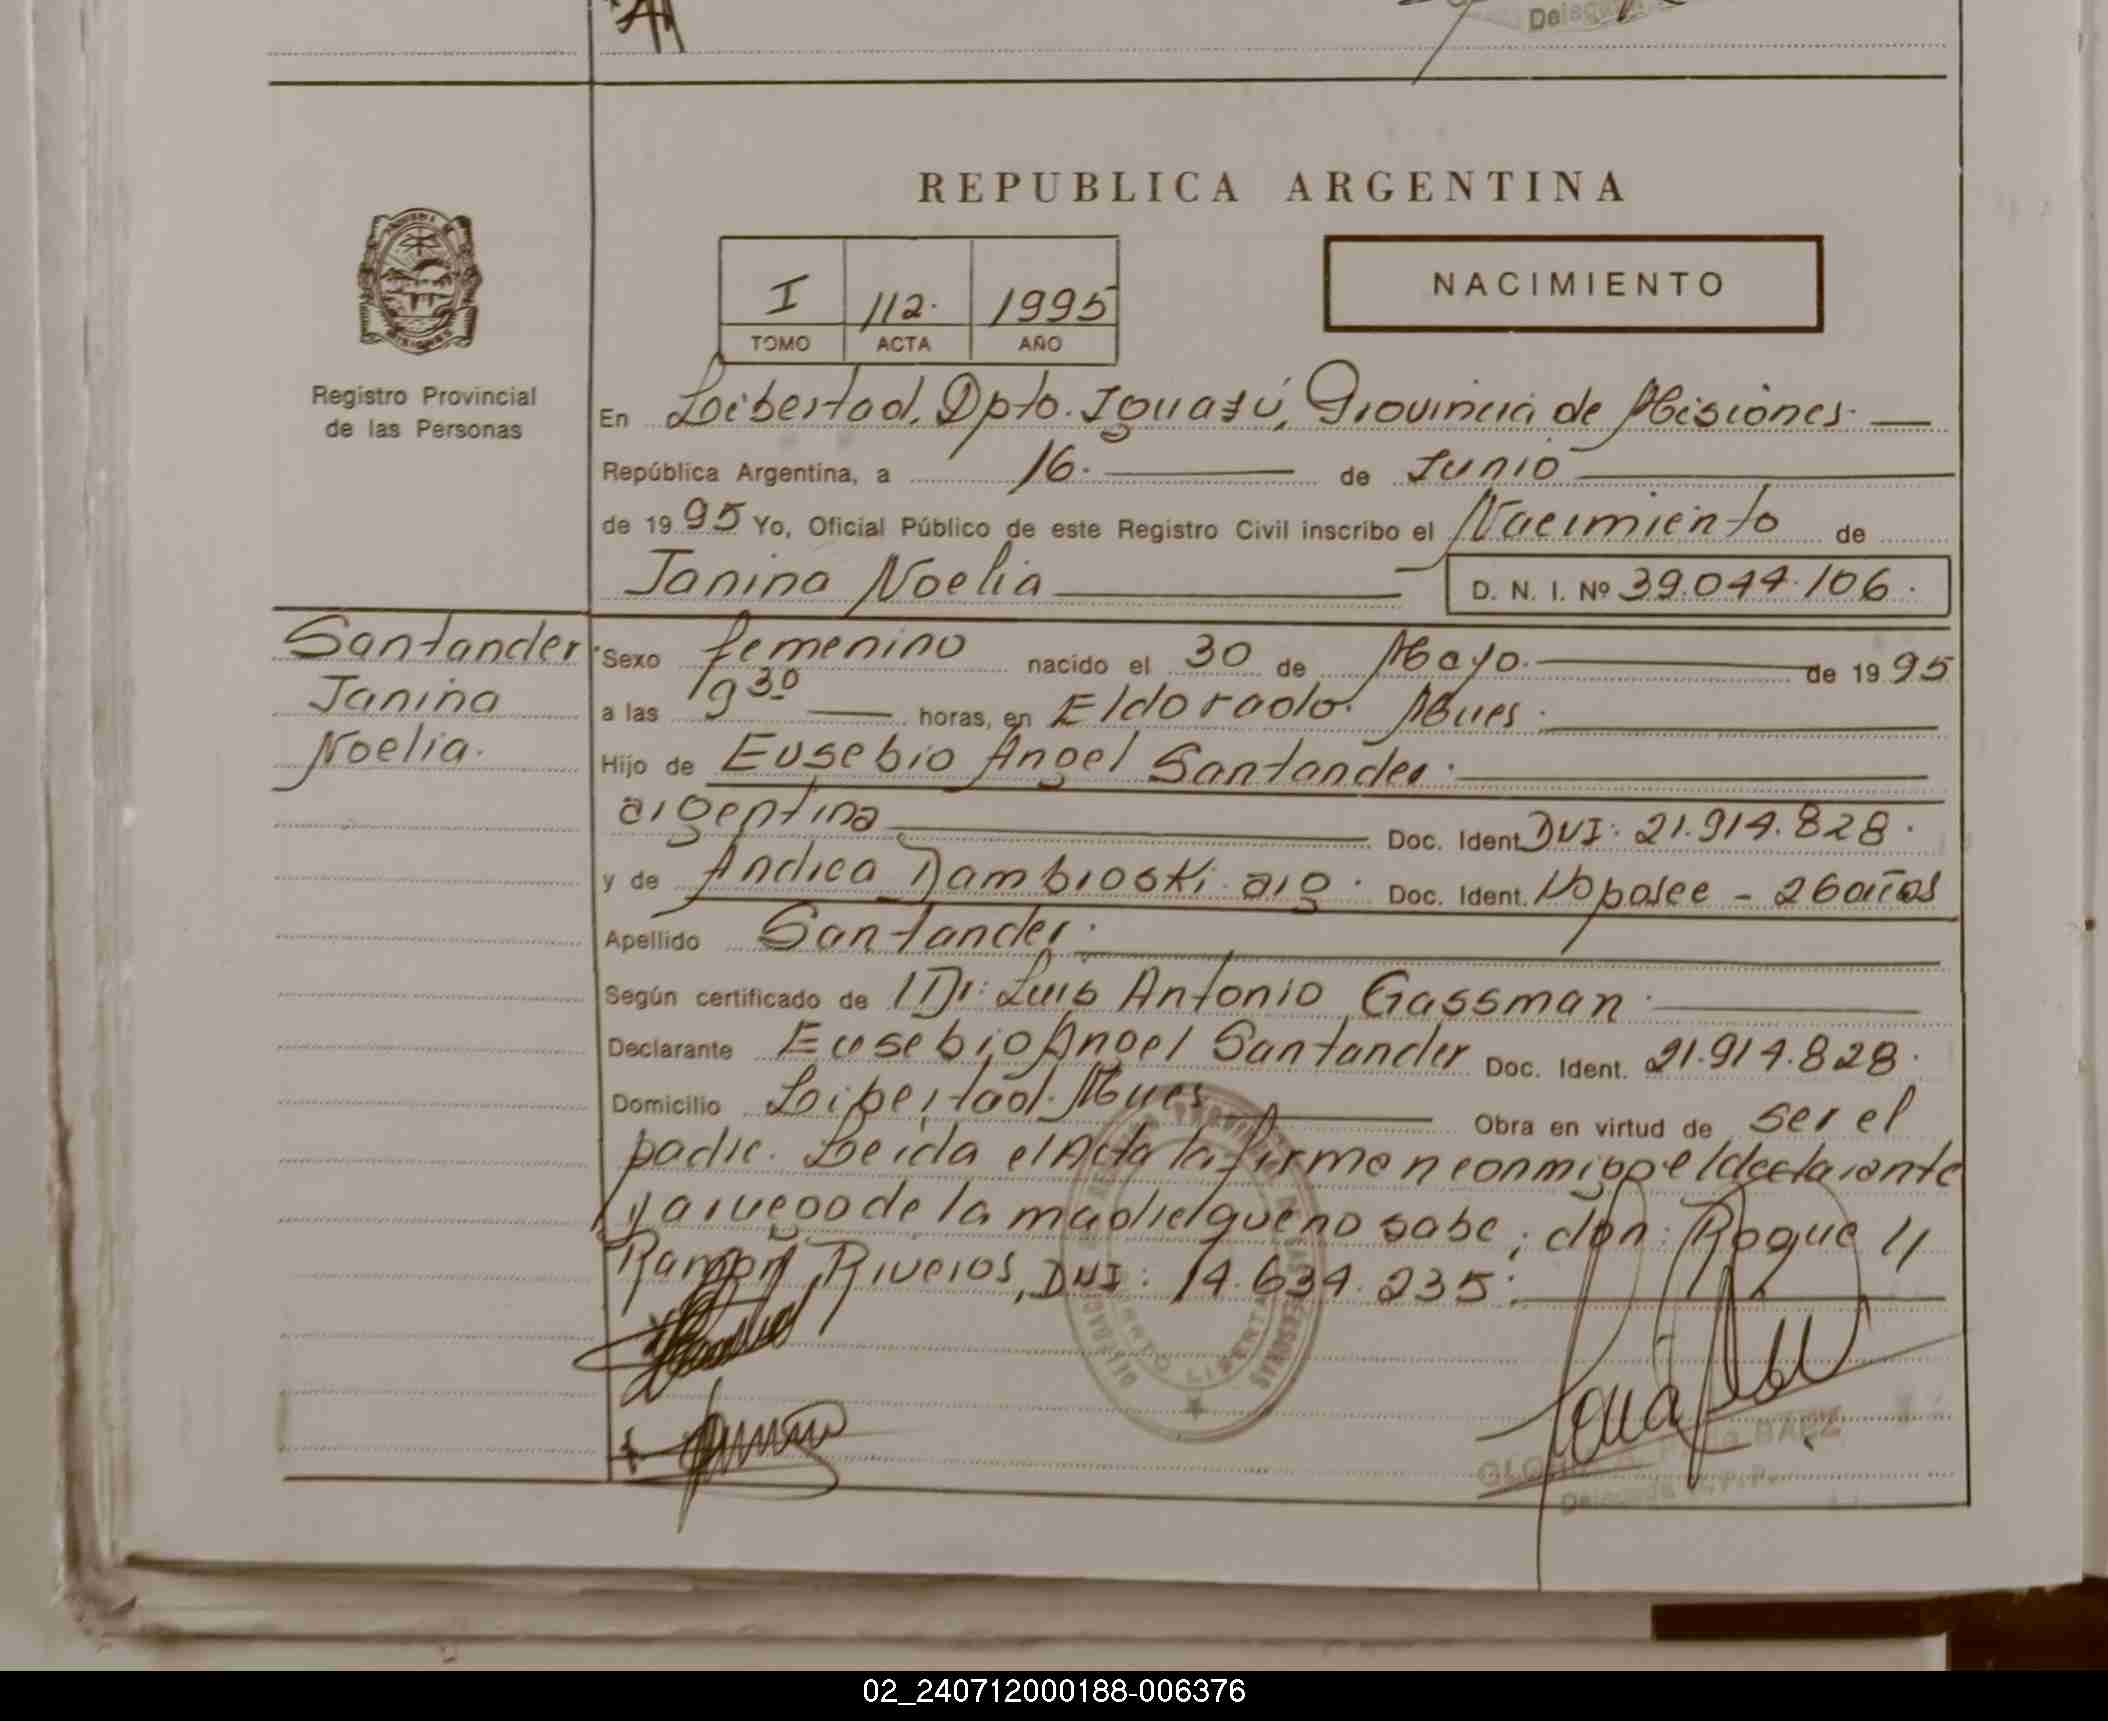 REPUBLICA ARGENTINA
NACIMIENTO
I 112. 1995
TOMO ACTA AÑO
Registro Provincial
de las Personas
En Libertad, Dpto. Iguazú, Provincia de Misiones.
República Argentina, a 16. de Junio
de 1995 Yo, Oficial Público de este Registro Civil inscribo el Nacimiento de
Janina Noelia D. N. I. Nº 39.044.106.
Santander
Janina
Noelia.
Sexo femenino nacido el 30 de Mayo. de 1995
a las 19 30 horas, en Eldorado. Mnes.
Hijo de Eusebio Angel Santander.
argentina Doc. Ident. DNI: 21.914.828.
y de Andrea Dambroski arg. Doc. Ident. No posee - 26 años
Apellido Santander.
Según certificado de Dr: Luis Antonio Gassman.
Declarante Eusebio Angel Santander Doc. Ident. 21.914.828.
Domicilio Libertad. Mnes Obra en virtud de ser el
padre. Leida el Acta la firman conmigo el declarante
y a ruego de la madre que no sabe, don: Roque
Ramon Riveros, DNI: 14.634.235:
LIBERTAD
BAEZ
Delegada
02_240712000188-006376